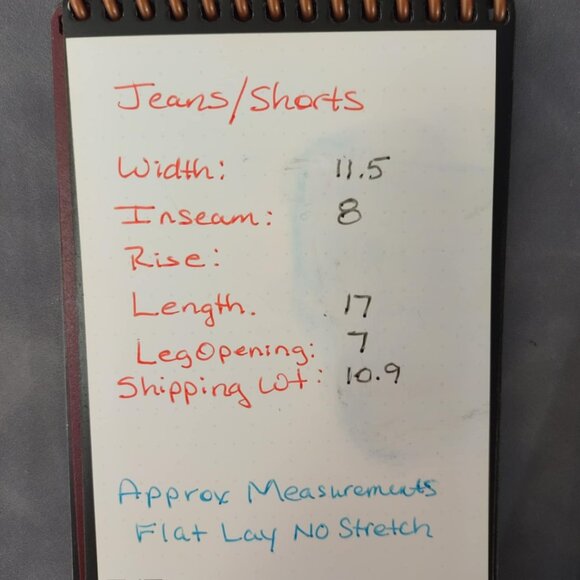 Jeans/Shorts
Width: 11.5
Inseam: 8
Rise:
Length. 17
Leg Opening: 7
Shipping Wt: 10.9
Approx Measurements
Flat Lay No Stretch